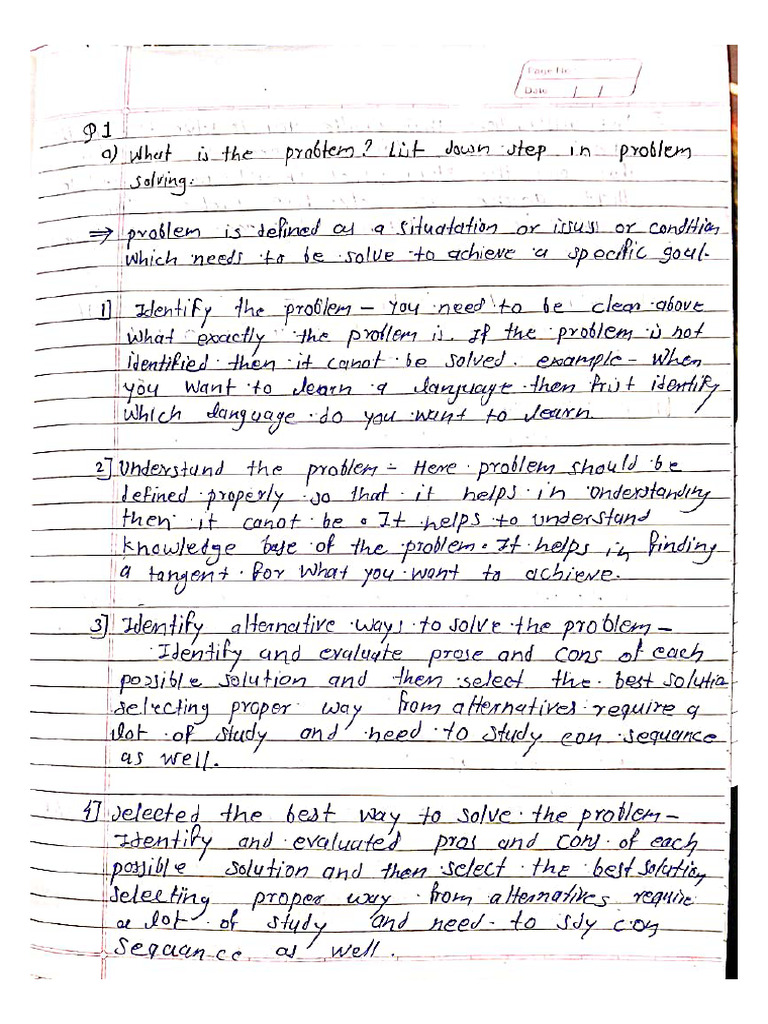 Page No.
Date / /
Q 1
a) What is the problem? List down step in problem
solving.
⇒ problem is defined as a situatation or issus or condition
which needs to be solve to achieve a specific goal.
1] Identify the problem – You need to be clear above
what exactly the problem is. If the problem is not
identified then it canot be solved. example – When
you want to learn a language then frist identify
which language do you want to learn.
2] Understand the problem – Here problem should be
defined properly so that it helps in understanding
then it canot be. It helps to understand
knowledge base of the problem. It helps in finding
a tangent for what you want to achieve.
3] Identify alternative ways to solve the problem –
Identify and evaluate prose and cons of each
possible solution and then select the best solutio
selecting proper way from alternatives require a
lot of study and need to study con sequance
as well.
4] selected the best way to solve the problem –
Identify and evaluated pros and cons of each
possible solution and then select the best solution
selecting proper way from alternatives require
a lot of study and need to sdy con
sequance as well.